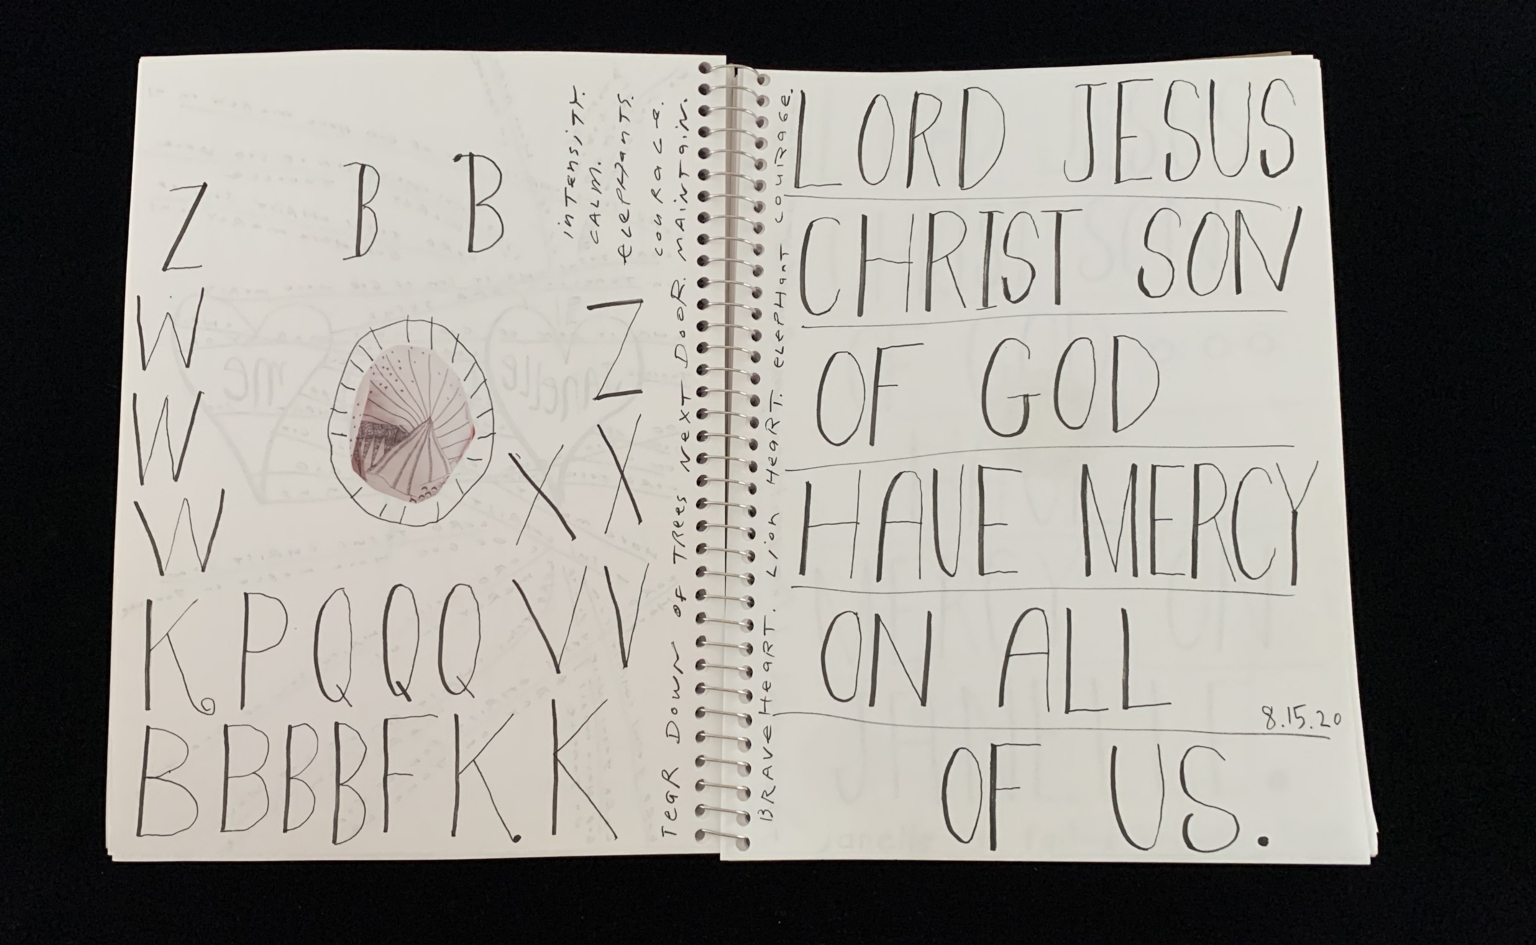 Z B B
W Z
W X X
W
K P Q Q Q V V
B B B B F K. K
intensity.
CALM.
elepHants.
couRAGe.
TeaR DowN of TRees NexT DooR. MAINTAIN.
BRAVeHeaRT. Lion HeaRT. elepHanT couRAGe.
LORD JESUS
CHRIST SON
OF GOD
HAVE MERCY
ON ALL
8.15.20
OF US.